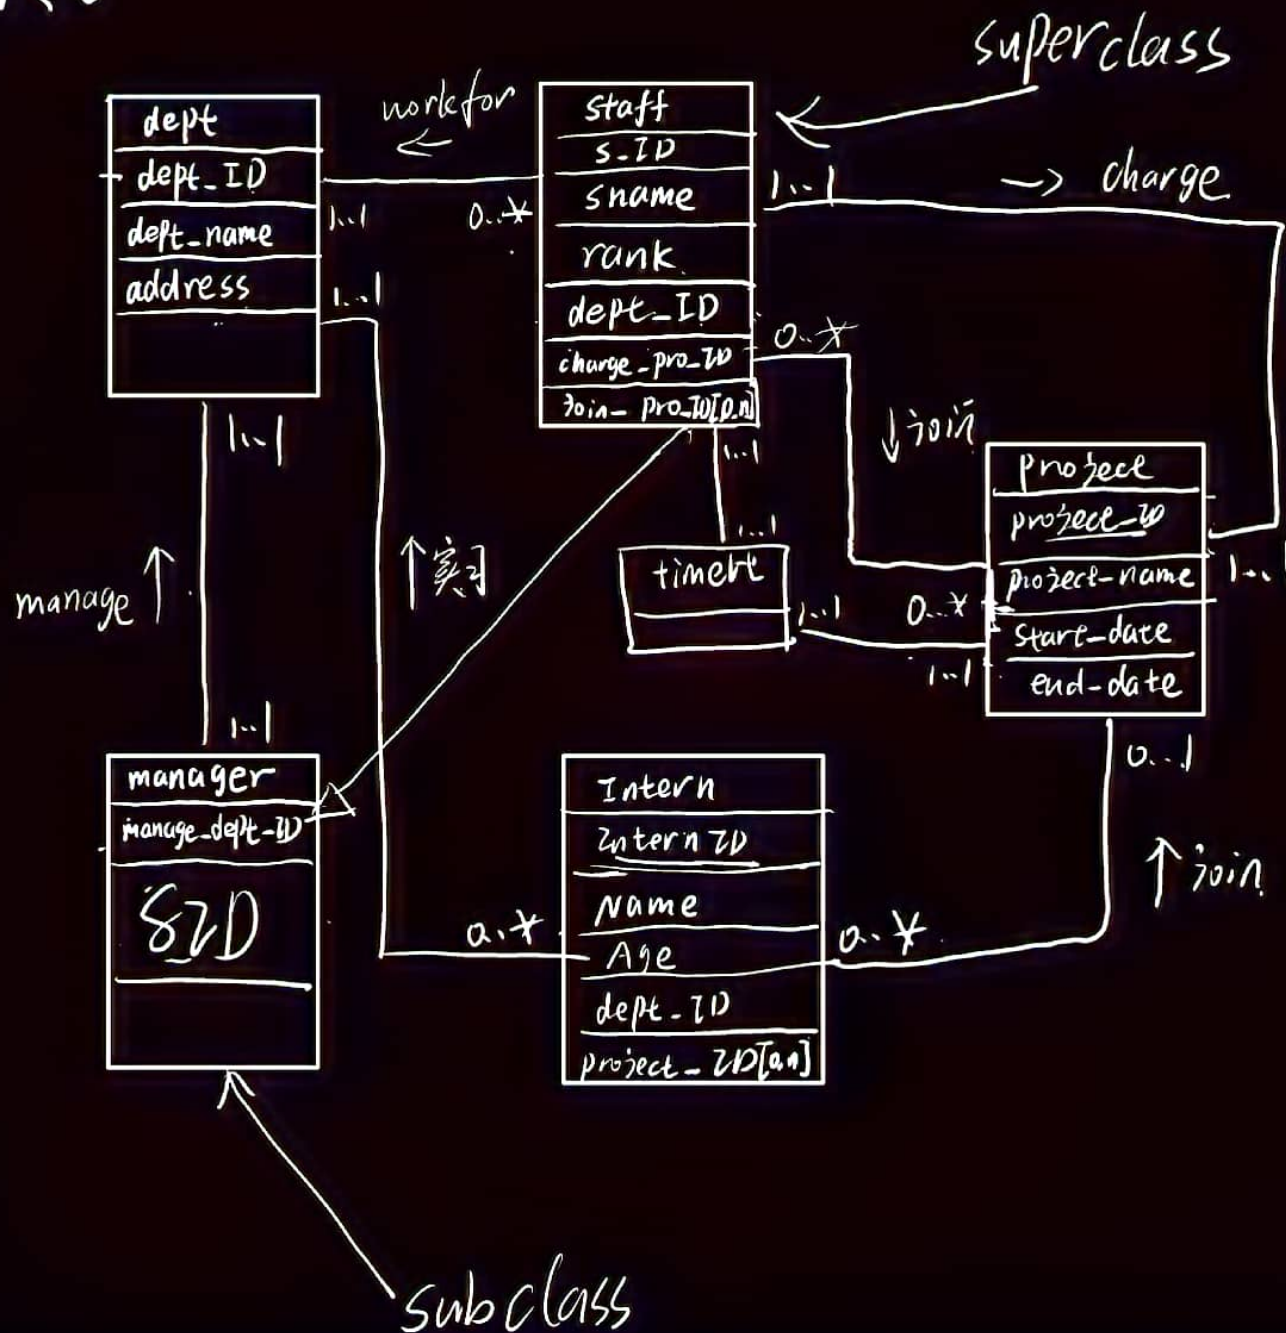 superclass
dept
dept_ID
dept_name
address
work for
←
1..1
0..*
1..1
staff
s_ID
sname
rank
dept_ID
charge_pro_ID
join_pro_ID[0,n]
1...1
→ charge
0..*
↓ join
1..1
1..1
1..1
project
project_ID
project-name
start-date
end-date
1..1
0..*
1..1
1..1
manage ↑
↑ 实习
1..1
manager
manage_dept_ID
SID
Intern
Intern ID
Name
Age
dept_ID
project_ID[0,n]
0..*
0..*
0...1
↑ join
subclass